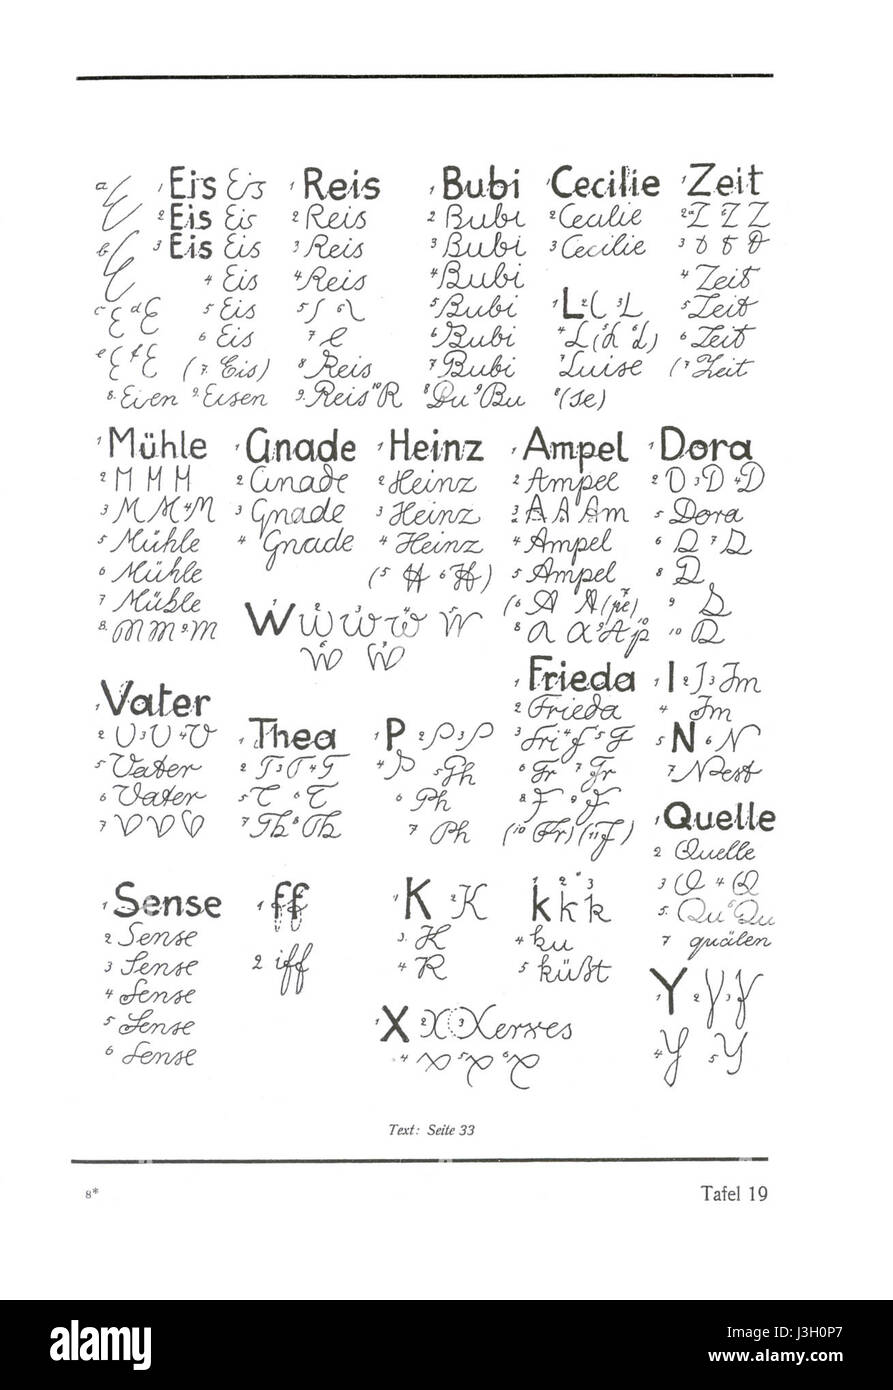 a 1 Eis Eis 1 Reis 1 Bubi 1 Cecilie 1 Zeit
2 Eis Eis 2 Reis 2 Bubi 2 Cecilie 2 Z Z Z
b 3 Eis Eis 3 Reis 3 Bubi 3 Cecilie 3
4 Eis 4 Reis 4 Bubi 4 Zeit
c E d E 5 Eis 5 6 5 Bubi 1 L 2 L 3 L 5 Zeit
6 Eis 7 6 Bubi 4 L (5 L 6 L) 6 Zeit
e E f E (7. Eis) 8 Reis 7 Bubi 7 Luise (7 Zeit
8. Eien 9. Eisen 9. Reis 10 R 8 Du 9 Bu 8 (se)
1 Mühle 1 Gnade 1 Heinz 1 Ampel 1 Dora
2 M M M 2 Gnade 2 Heinz 2 Ampel 2 D 3 D 4 D
3 M M 4 M 3 Gnade 3 Heinz 3 A A Am 5 Dora
5 Mühle 4 Gnade 4 Heinz 4 Ampel 6 D 7 D
6 Mühle (5 H 6 H) 5 Ampel 8 D
7 Mühle 1 W 2 W 3 W 4 W 5 W (6 A A (pe) 9 D
8. M M 9. M 8 A A 9 A 10 p 10 D
6 W 7 W
1 Vater 1 Frieda 1 I 2 I 3 Im
2 Frieda 4 Im
2 V 3 V 4 V 1 Thea 1 P 2 P 3 P 3 Fri 4 F 5 F 5 N 6 N
5 Vater 2 T 3 T 4 T 4 P 5 Ph 6 Fr 7 Fr 7 Nest
6 Vater 5 T 6 T 6 Ph 8 F 9 F
7 V V V 7 Th 8 Th 7 Ph (10 Fr) (11 F) 1 Quelle
2 Quelle
1 Sense 1 ff 1 K 2 K 1 k 2 k 3 k 3 Q 4 Q
2 Sense 3. K 4 ku 5. Qu 6 Qu
3 Sense 2 iff 4 K 5 küßt 7 quälen
4 Sense 1 Y 2 Y 3 Y
5 Sense 1 X 2 X 3 Xerxes
6 Sense 4 X 5 X 6 X 4 Y 5 Y
Text: Seite 33
8* Tafel 19
alamy
Image ID: J3H0P7
www.alamy.com